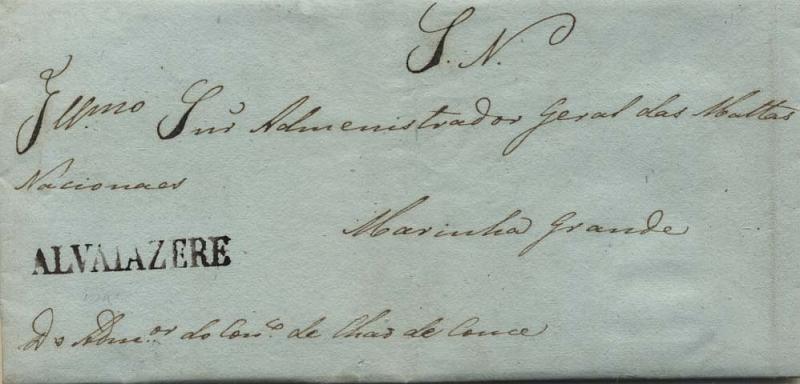 S. N.
Illmo Snr Admenistrador Geral das Mattas
Nacionaes
Marinha Grande
ALVAIAZERE
Do Admor do Cono de Chao de Couce